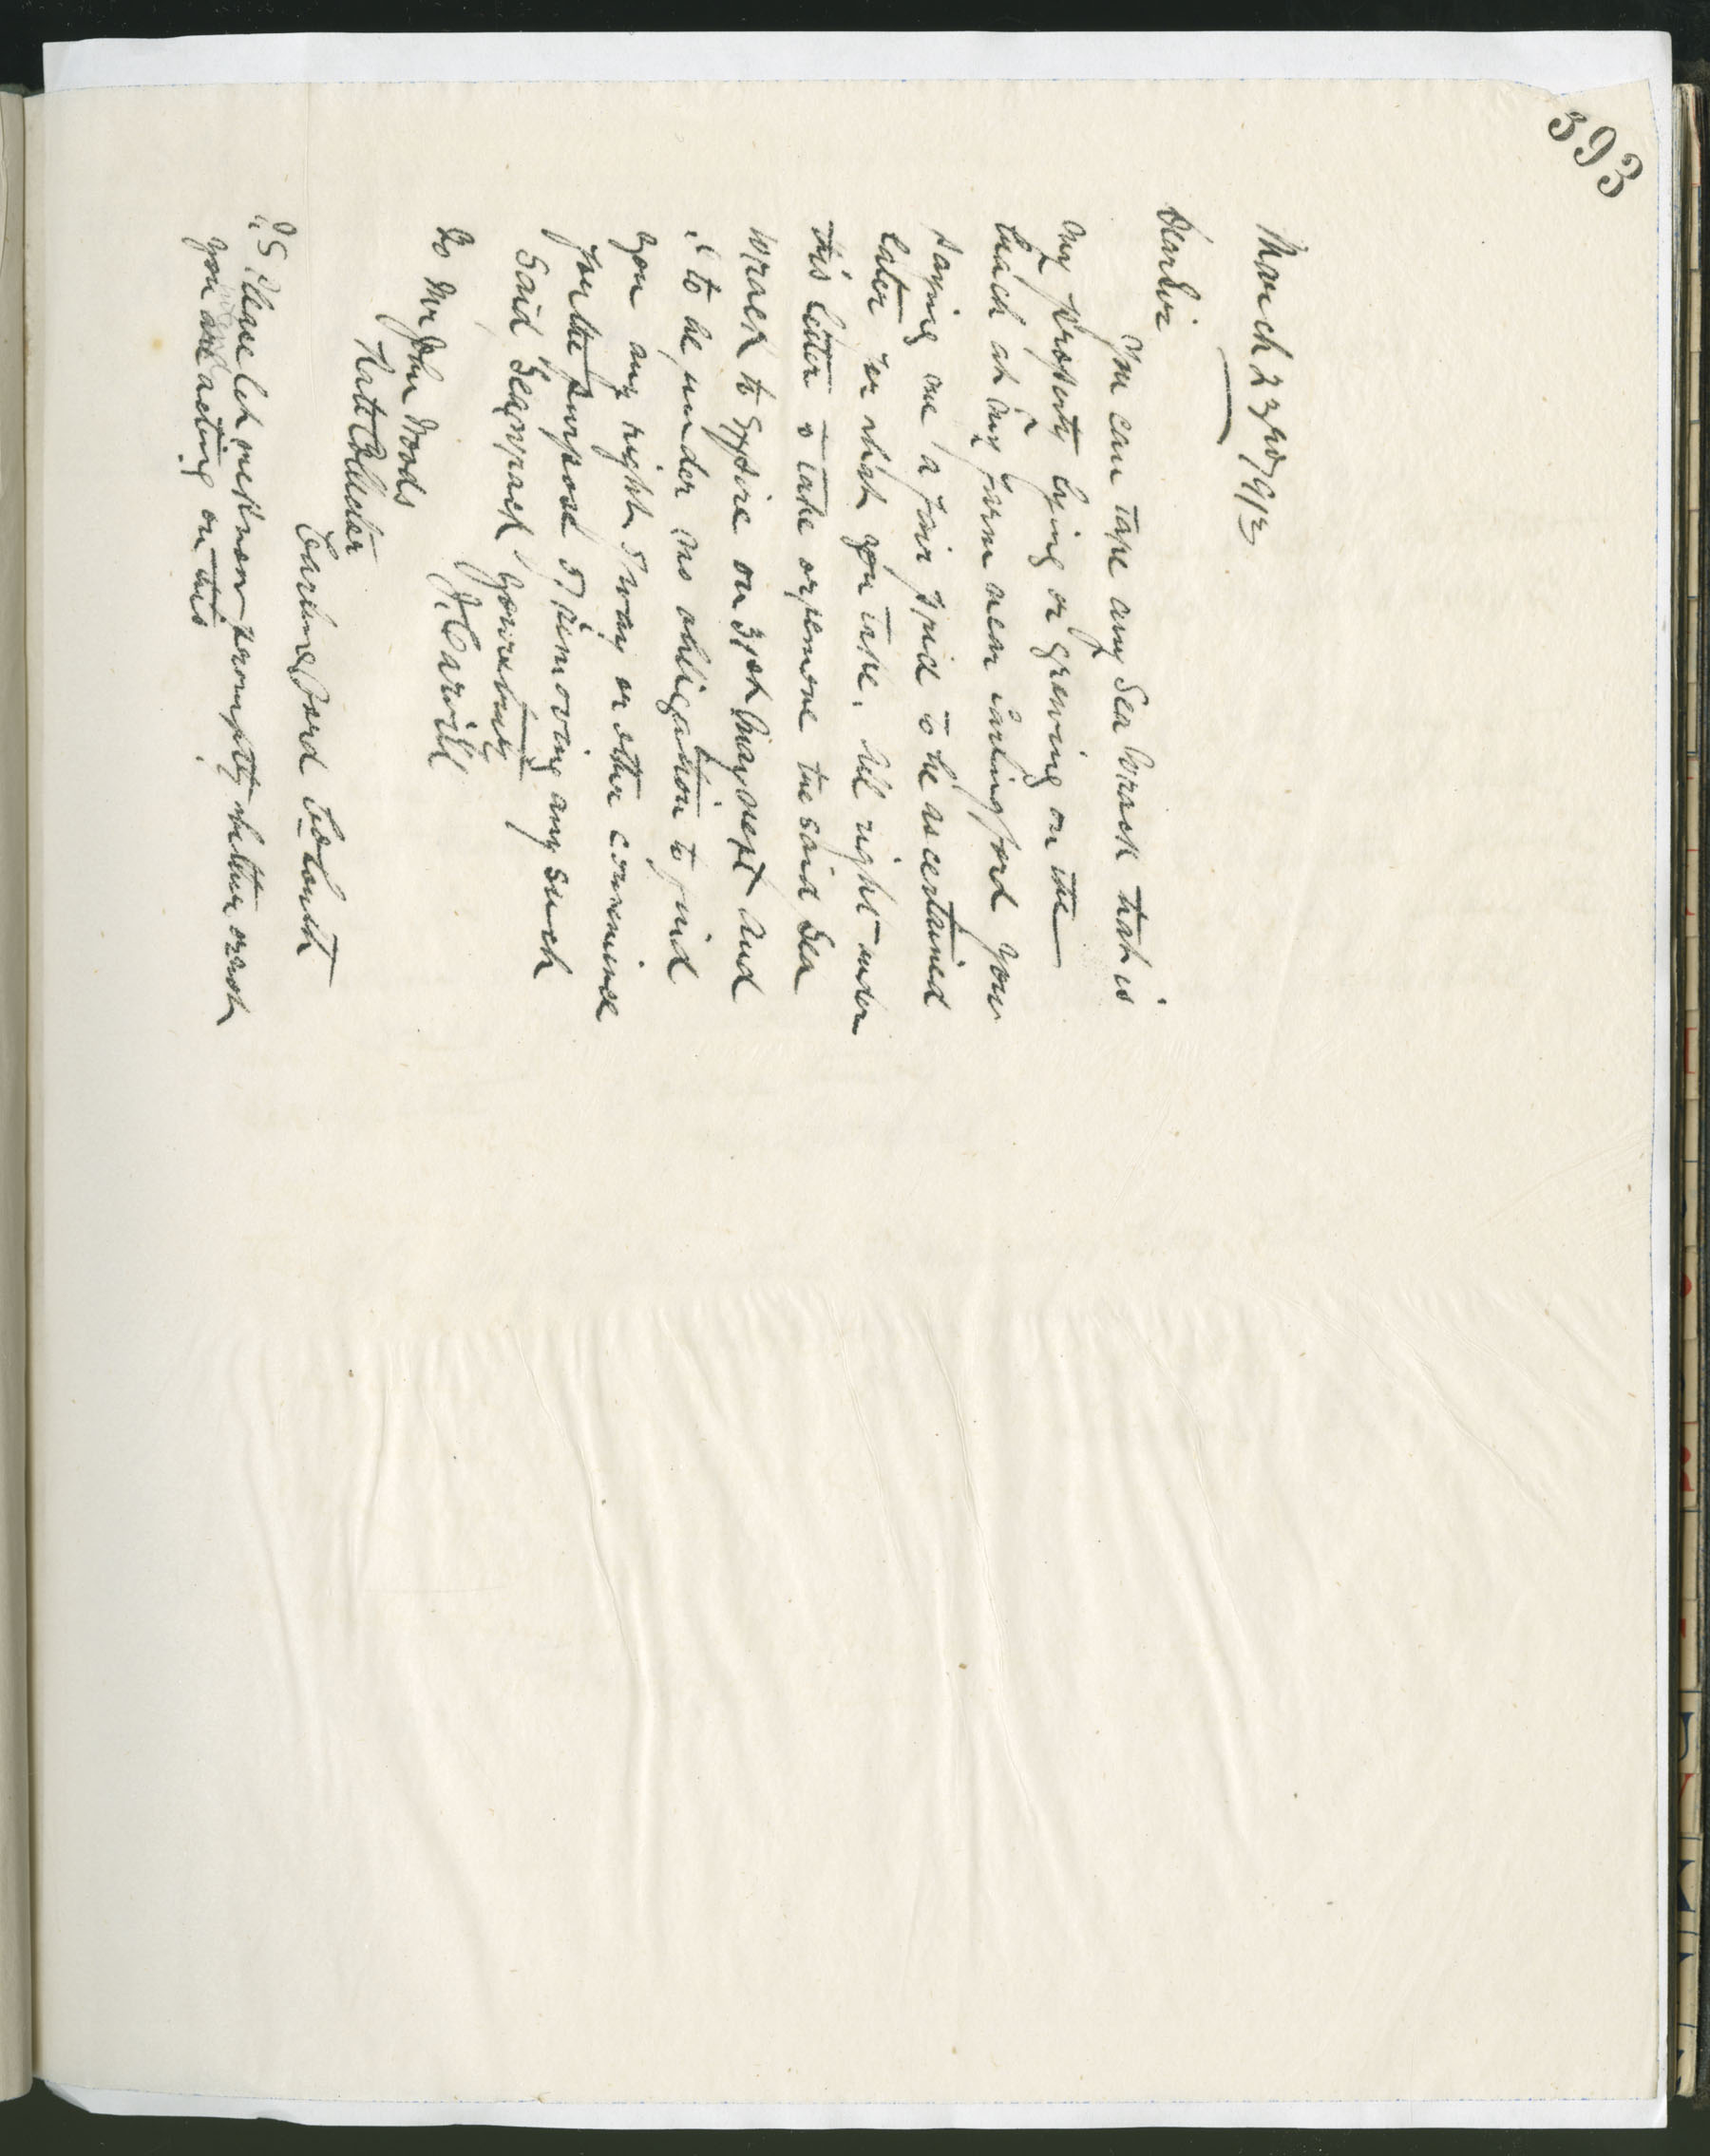 393
March 23rd 1912
Dear Sir
You can take any Sea Wrack that is
my property lying or growing on the
beach at my farm near Carlingford you
paying me a fair price to be ascertained
later for what you take. All right under
this letter to take or remove the said Sea
Wrack to expire on 31st May next and
I to be under no obligation to find
you any right of way or other convenience
for the purpose of removing any such
said Seawrack Yours truly
J. Carvill
To Mr John Woods
Carlingford Co Louth
P.S. Please let me know promptly whether or not
you are acting on this